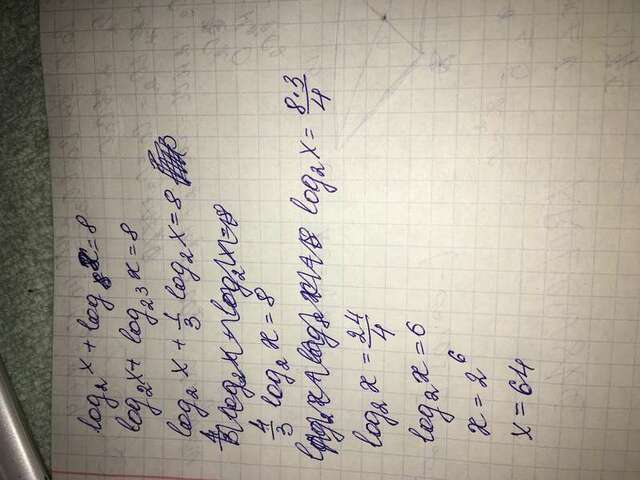 log₂ x + log₈ x = 8
log₂ x + log₂³ x = 8
log₂ x + 1/3 log₂ x = 8
4/3 log₂ x = 8
log₂ x = 8·3/4
log₂ x = 24/4
log₂ x = 6
x = 2⁶
x = 64